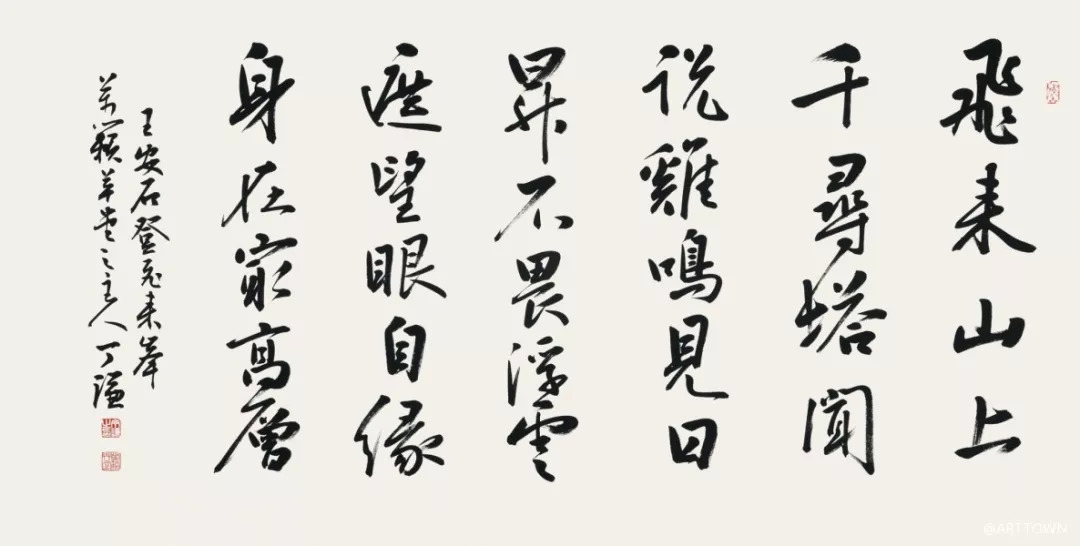 飛来山上
千尋塔聞
説雞鳴見日
昇不畏浮雲
遮望眼自緣
身在最高層
王安石登飛来峰
萬籟草堂之主人丁謙
@ARTTOWN